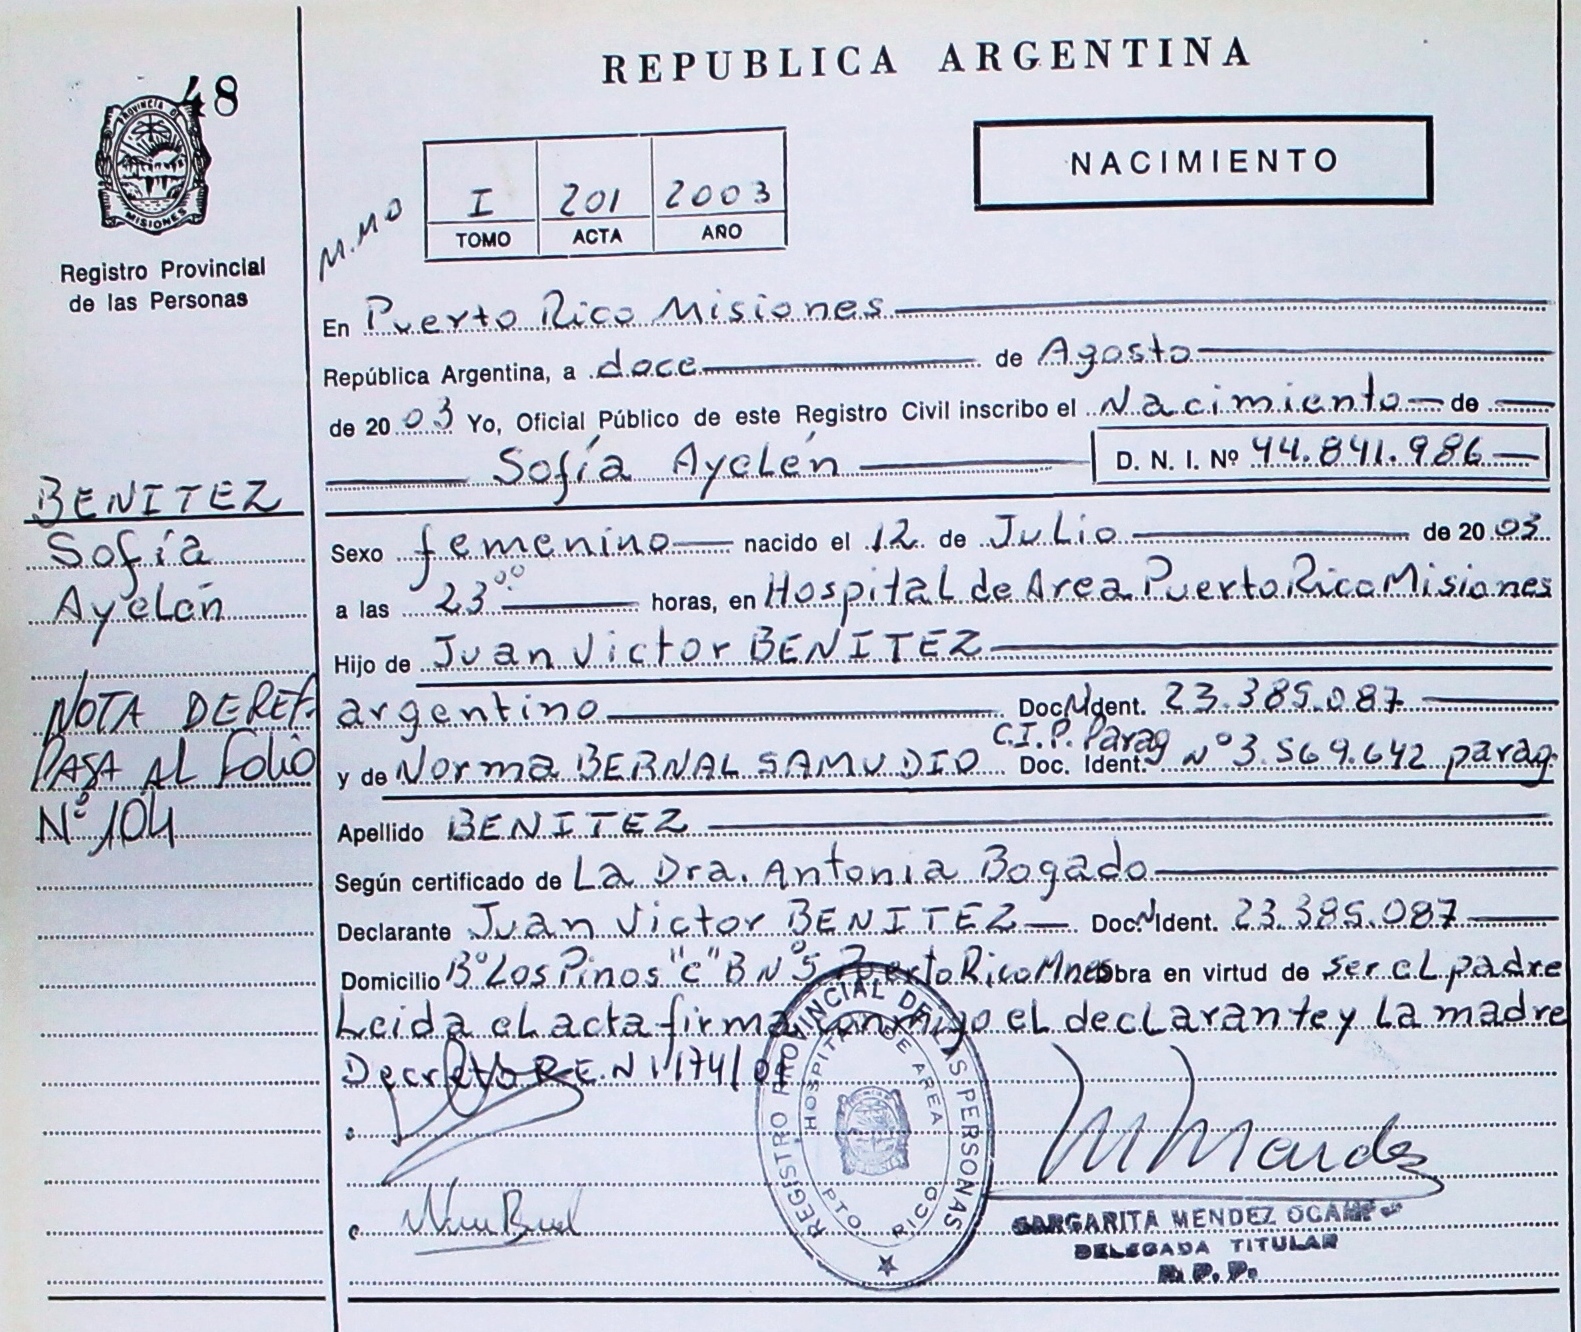 REPUBLICA ARGENTINA
48
PROVINCIA DE
MISIONES
Registro Provincial
de las Personas
NACIMIENTO
M.MO
I 201 2003
TOMO ACTA AÑO
En Puerto Rico Misiones
República Argentina, a doce de Agosto
de 2003 Yo, Oficial Público de este Registro Civil inscribo el Nacimiento de
Sofía Ayelén D. N. I. Nº 44.841.986
BENITEZ
Sofía
Ayelén
NOTA DE REF.
PASA AL Folio
Nº 104
Sexo femenino nacido el 12 de Julio de 2003
a las 23⁰⁰ horas, en Hospital de Area Puerto Rico Misiones
Hijo de Juan Victor BENITEZ
argentino Doc. N Ident. 23.385.087
C.I.P. Parag
y de Norma BERNAL SAMUDIO Doc. Ident. Nº 3.569.642 parag.
Apellido BENITEZ
Según certificado de La Dra. Antonia Bogado
Declarante Juan Victor BENITEZ Doc. N Ident. 23.385.087
Domicilio Bº Los Pinos "C" B Nº 5 Puerto Rico Mnes obra en virtud de ser el padre
Leida el acta firma conmigo el declarante y La madre
Decreto P.E.N 1174/
REGISTRO PROVINCIAL DE LAS PERSONAS
HOSPITAL DE AREA
PTO RICO
M Mendez
MARGARITA MENDEZ OCAMPO
DELEGADA TITULAR
R.P.P.